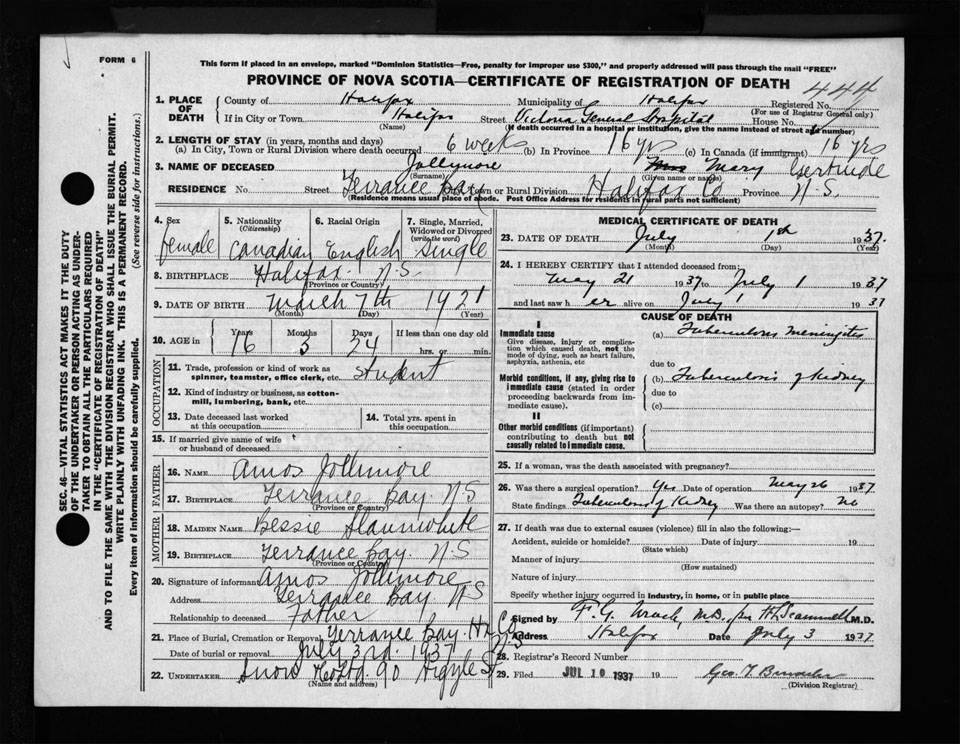 FORM 6
This form if placed in an envelope, marked "Dominion Statistics—Free, penalty for improper use $300," and properly addressed will pass through the mail "FREE"
PROVINCE OF NOVA SCOTIA—CERTIFICATE OF REGISTRATION OF DEATH
444
1. PLACE OF DEATH County of Halifax Municipality of Halifax Registered No. (For use of Registrar General only)
If in City or Town Halifax (Name) Street Victoria General Hospital House No.
(If death occurred in a hospital or institution, give the name instead of street and number)
2. LENGTH OF STAY (in years, months and days)
(a) In City, Town or Rural Division where death occurred 6 weeks (b) In Province 16 yrs (c) In Canada (if immigrant) 16 yrs
3. NAME OF DECEASED Jollymore (Surname) Mary Gertrude (Given name or names)
RESIDENCE No. Street Terrance Bay City, Town or Rural Division Halifax Co Province N-S.
(Residence means usual place of abode. Post Office Address for residents in rural parts not sufficient)
4. Sex female
5. Nationality (Citizenship) Canadian
6. Racial Origin English
7. Single, Married, Widowed or Divorced (write the word) single
8. BIRTHPLACE Halifax N.S (Province or Country)
9. DATE OF BIRTH March 7th 1921
(Month) (Day) (Year)
10. AGE in Years 16 Months 3 Days 24 If less than one day old hrs. or min.
OCCUPATION
11. Trade, profession or kind of work as spinner, teamster, office clerk, etc. student
12. Kind of industry or business, as cotton-mill, lumbering, bank, etc.
13. Date deceased last worked at this occupation
14. Total yrs. spent in this occupation
15. If married give name of wife or husband of deceased
FATHER
16. NAME Amos Jollimore
17. BIRTHPLACE Terrance Bay. N.S (Province or Country)
MOTHER
18. MAIDEN NAME Bessie Slaunwhite
19. BIRTHPLACE Terrance Bay. N.S (Province or Country)
20. Signature of informant Amos Jollimore
Address Terrance Bay. N.S
Relationship to deceased Father
21. Place of Burial, Cremation or Removal Terrance Bay. Hx Co N.S
Date of burial or removal July 3rd. 1937
22. UNDERTAKER Snow & Co Ltd. 90 Argyle St
(Name and address)
MEDICAL CERTIFICATE OF DEATH
23. DATE OF DEATH July 1st 1937.
(Month) (Day) (Year)
24. I HEREBY CERTIFY that I attended deceased from:
May 21 1937 to July 1 1937
and last saw h er alive on July 1 1937
CAUSE OF DEATH
I
Immediate cause
Give disease, injury or complication which caused death, not the mode of dying, such as heart failure, asphyxia, asthenia, etc
(a) Tuberculous Meningitis
due to
Morbid conditions, if any, giving rise to immediate cause (stated in order proceeding backwards from immediate cause).
(b) Tuberculosis of Kidney
due to
(c)
II
Other morbid conditions (if important) contributing to death but not causally related to immediate cause.
25. If a woman, was the death associated with pregnancy?
26. Was there a surgical operation? Yes Date of operation May 26 1937
State findings Tuberculosis of Kidney Was there an autopsy? No
27. If death was due to external causes (violence) fill in also the following:—
Accident, suicide or homicide? Date of injury 19
(State which)
Manner of injury
(How sustained)
Nature of injury
Specify whether injury occurred in industry, in home, or in public place
Signed by F. G. M.D. M.D.
Address Halifax Date July 3 1937
28. Registrar's Record Number
29. Filed JUL 10 1937 19 Geo. T.
(Division Registrar)
SEC. 46—VITAL STATISTICS ACT MAKES IT THE DUTY
OF THE UNDERTAKER OR PERSON ACTING AS UNDER-
TAKER TO OBTAIN ALL THE PARTICULARS REQUIRED
IN THE "CERTIFICATE OF REGISTRATION OF DEATH"
AND TO FILE THE SAME WITH THE DIVISION REGISTRAR WHO SHALL ISSUE THE BURIAL PERMIT.
WRITE PLAINLY WITH UNFADING INK. THIS IS A PERMANENT RECORD.
Every item of information should be carefully supplied. (See reverse side for instructions.)